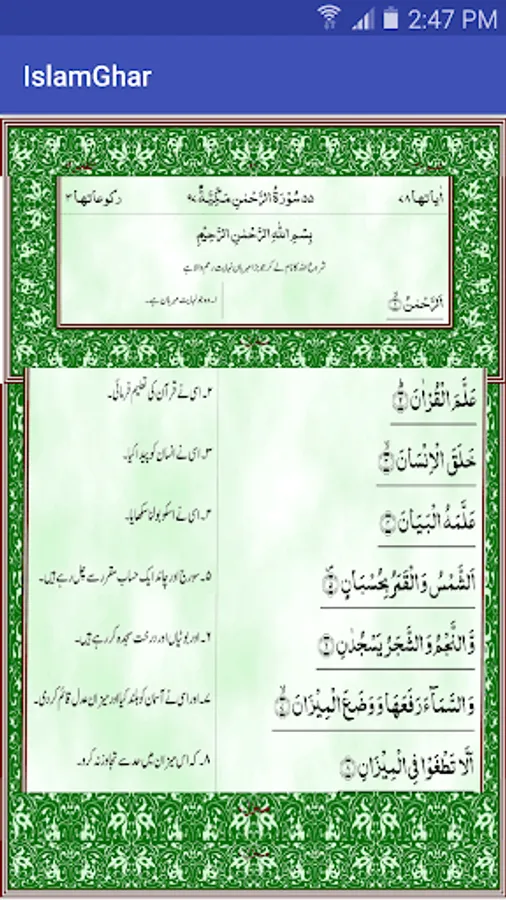 2:47 PM
IslamGhar
اٰیاتها ٧٨ ٥٥ سُوْرَةُ الرَّحْمٰنِ مَكِّيَّةٌ ٩٧ رکوعاتها ٣
بِسْمِ اللهِ الرَّحْمٰنِ الرَّحِيْمِ
شروع اللہ کا نام لے کر جو بڑا مہربان نہایت رحم والا ہے
اَلرَّحْمٰنُ ۙ﴿١﴾ ۱۔ وہ جو نہایت مہربان ہے۔
عَلَّمَ الْقُرْاٰنَ ؕ﴿٢﴾ ۲۔ اسی نے قرآن کی تعلیم فرمائی۔
خَلَقَ الْاِنْسَانَ ۙ﴿٣﴾ ۳۔ اسی نے انسان کو پیدا کیا۔
عَلَّمَهُ الْبَيَانَ ﴿٤﴾ ۴۔ اسی نے اسکو بولنا سکھایا۔
اَلشَّمْسُ وَالْقَمَرُ بِحُسْبَانٍ ۪﴿٥﴾ ۵۔ سورج اور چاند ایک حساب مقرر سے چل رہے ہیں۔
وَّالنَّجْمُ وَالشَّجَرُ يَسْجُدٰنِ ﴿٦﴾ ۶۔ اور بوٹیاں اور درخت سجدہ کر رہے ہیں۔
وَالسَّمَآءَ رَفَعَهَا وَوَضَعَ الْمِيْزَانَ ۙ﴿٧﴾ ۷۔ اور اسی نے آسمان کو بلند کیا اور میزان عدل قائم کر دی۔
اَلَّا تَطْغَوْا فِى الْمِيْزَانِ ﴿٨﴾ ۸۔ کہ اس میزان میں حد سے تجاوز نہ کرو۔